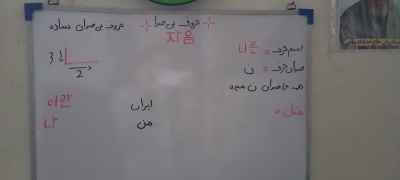 حروف بی صدا
حروف بی صدای ساده
자음
اسم حرف = 니은
صدای حرف = ن
صدای ن میده
مثل =
ایران 이란
من 나
3↓
2